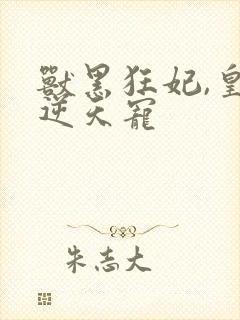 獸黑狂妃,皇
逆天寵
朱志大